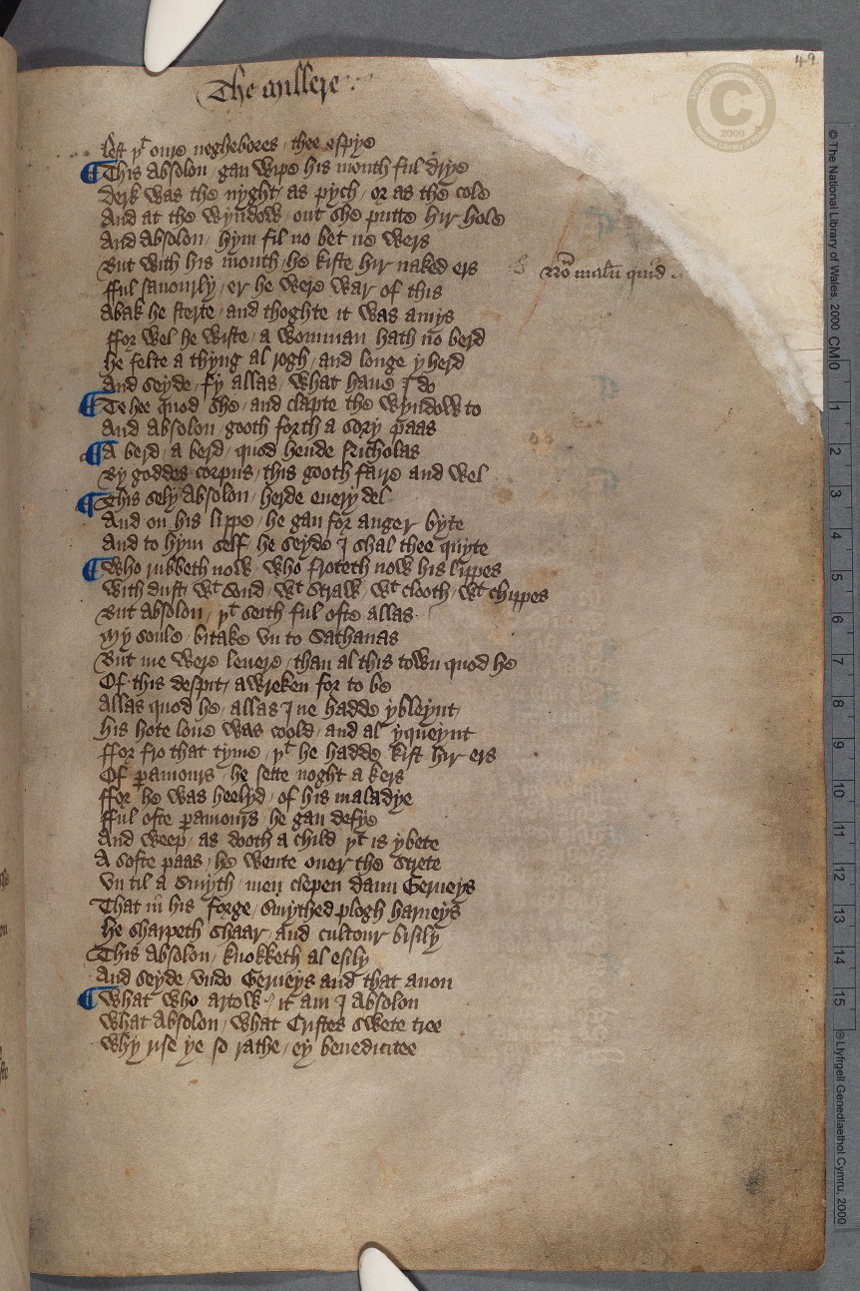 The Millere
49
lest þt oure neghebores / thee espye
This Absolon / gan wipe his mouth ful drye
Derk was the nyght / as pych / or as the cole
And at the wyndow / out she putte hir hole
And Absolon / hym fil no bet ne wers
But with his mouth / he kiste hir naked ers
Non malum quid
fful sauourly / er he were war of this
Abak he sterte / and thoghte it was amys
ffor wel he wiste / a womman hath no berd
he felte a thyng al rogh / and longe yherd
And seyde / fy allas / what haue I do
Te hee quod she / and clapte the wyndow to
And Absolon / gooth forth a sory paas
A berd / a berd / quod hende Nicholas
By goddes corpus / this gooth faire and wel
This sely Absolon / herde euery del
And on his lippe / he gan for anger byte
And to hym self he seyde I shal thee quyte
Who rubbeth now / who froteth now his lippes
With dust / wt sond / wt straw / wt clooth / wt chippes
But Absolon / þt seith ful ofte allas
My soule bitake vn to Sathanas
But me were leuere / than al this town quod he
Of this despit / awreken for to be
Allas quod he / allas I ne hadde ybleynt
his hote loue was coold / and al yqueynt
ffor fro that tyme / þt he hadde kist hir ers
Of paramours / he sette noght a kers
ffor he was heelyd / of his maladye
fful ofte paramours he gan defye
And weep / as dooth a child þt is ybete
A softe paas / he wente ouer the strete
Vn til a smyth / men clepen daun Gerueys
That in his forge / smythed plogh harneys
He sharpeth shaar / and cultour bisily
This Absolon / knokketh al esily
And seyde / vndo Gerueys and that anon
What who artow / it am I Absolon
What Absolon / what Cristes swete tree
Why rise ye so rathe / ey benedicitee
© The National Library of Wales, 2000
CM 0 1 2 3 4 5 6 7 8 9 10 11 12 13 14 15
© Llyfrgell Genedlaethol Cymru, 2000